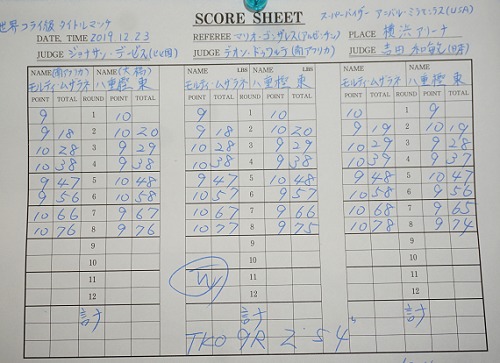 世界フライ級 タイトルマッチ SCORE SHEET スーパーバイザー アニバル・ミラモンテス(USA)
DATE, TIME 2019 12 23 REFEREE マリオ・ゴンザレス(アルゼンチン) PLACE 横浜アリーナ
JUDGE ジョナサン・デービス JUDGE デオン・ドゥワルテ(南アフリカ) JUDGE 吉田 和敏(日本)
NAME(南アフリカ) NAME(大橋) NAME LBS NAME LBS NAME NAME
モルティ・ムザラネ 八重樫 東 モルティ・ムザラネ 八重樫 東 モルティ・ムザラネ 八重樫 東
POINT TOTAL ROUND POINT TOTAL POINT TOTAL ROUND POINT TOTAL POINT TOTAL ROUND POINT TOTAL
9 1 10 9 1 10 10 1 9
9 18 2 10 20 9 18 2 10 20 9 19 2 10 19
10 28 3 9 29 10 28 3 9 29 10 29 3 9 28
10 38 4 9 38 10 38 4 9 38 10 39 4 9 37
9 47 5 10 48 9 47 5 10 48 9 48 5 10 47
9 56 6 10 58 10 57 6 9 57 10 58 6 9 56
10 66 7 9 67 10 67 7 9 66 10 68 7 9 65
10 76 8 9 76 10 77 8 9 75 10 78 8 9 74
9 9 9
10 10 10
11 W 11 11
12 12 12
計 計 計
TKO 9R 2'54"